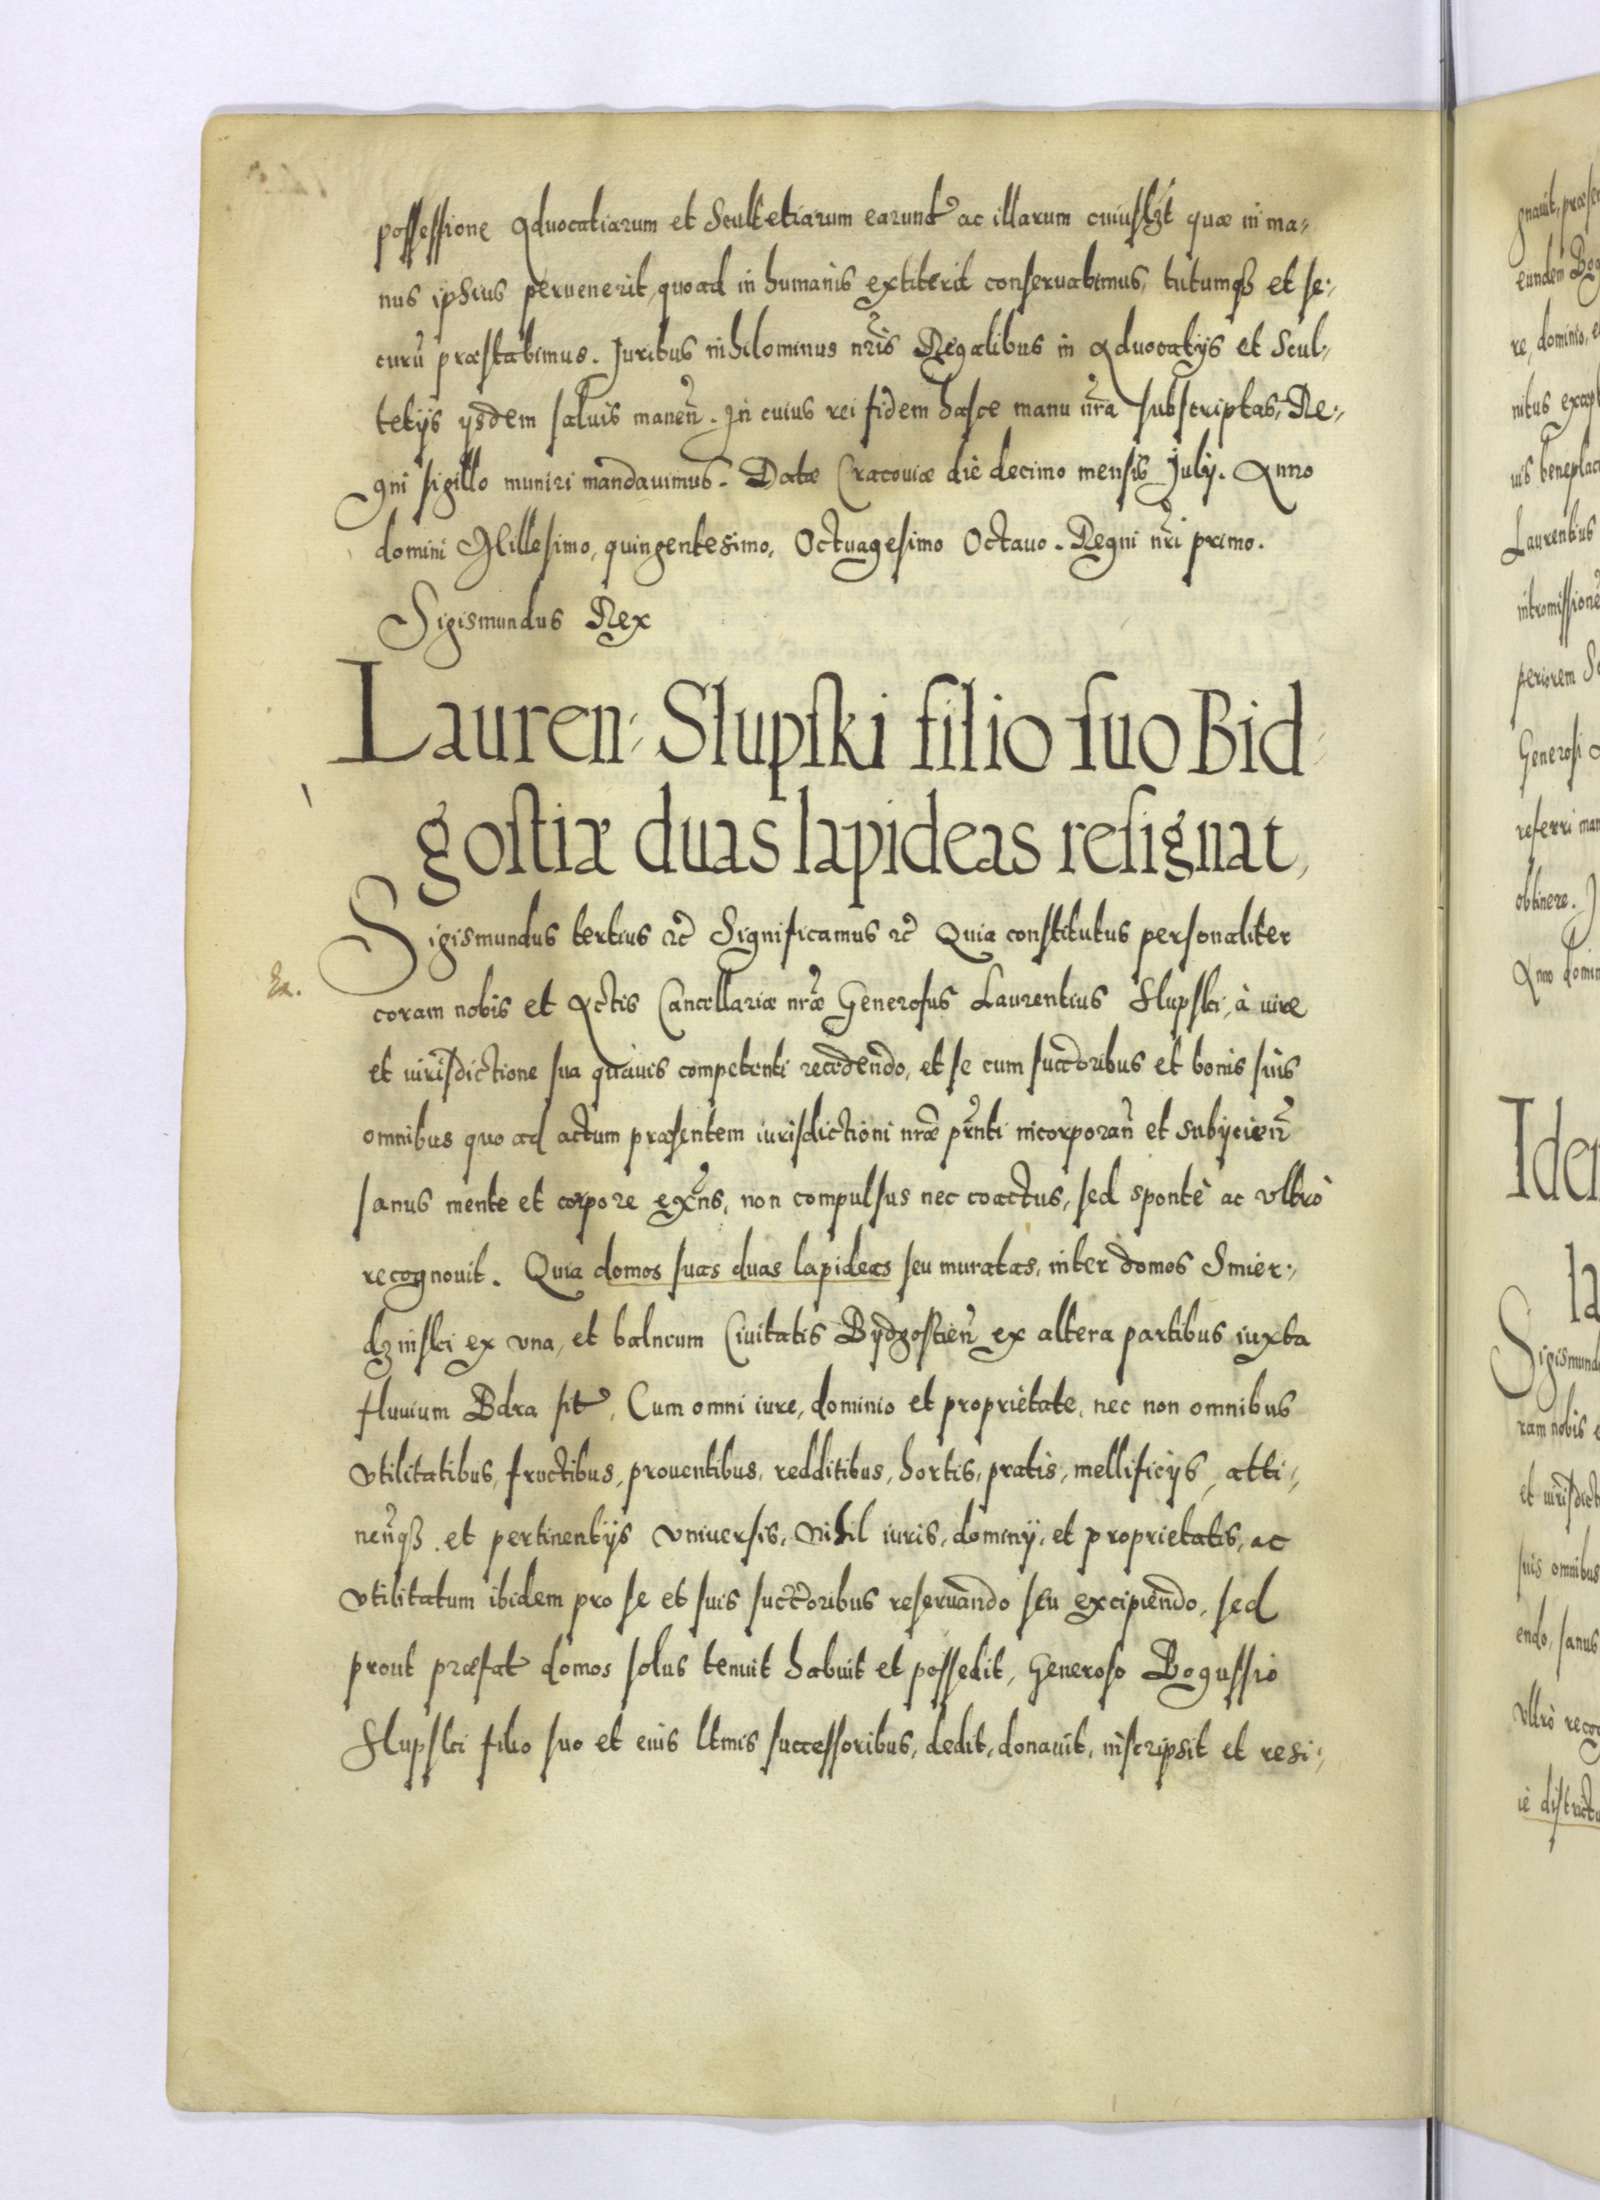 possessione Aduocatiarum et Scultetiarum earund ac illarum cuiuslzt quæ in ma-
nus ipsius peruenerit, quoad in humanis extiterit conseruabimus, tutumqȝ et se-
curũ præstabimus. Juribus nihilominus nr̃is Regalibus in Aduocatijs et Scul-
tetijs ijsdem saluis maneñ. In cuius rei fidem hasce manu nr̃a subscriptas, Re-
gni sigillo muniri mandauimus. Datæ Cracouiæ die decimo mensis July. Anno
domini Millesimo, quingentesimo, Octuagesimo Octauo. Regni nr̃i primo.
Sigismundus Rex
Lauren: Slupski filio suo Bid-
gostiæ duas lapideas resignat,
Sigismundus tertius etc̃ Significamus etc̃ Quia constitutus personaliter
Ex.
coram nobis et Actis Cancellariæ nr̃æ Generosus Laurentius Slupski, à iure
et iurisdictione sua quauis competenti recedendo, et se cum succ̃oribus et bonis suis
omnibus quo ad actum præsentem iurisdictioni nr̃æ pr̃nti incorporañ et subijcieñ
sanus mente et corpore exñs, non compulsus nec coactus, sed spontè ac vltrò
recognouit. Quia domos suas duas lapideas seu muratas, inter domos Smier-
dzinski ex vna, et balneum Ciuitatis Bydgostieñ ex altera partibus iuxta
fluuium Bdra sit, Cum omni iure, dominio et proprietate, nec non omnibus
vtilitatibus, fructibus, prouentibus, redditibus, hortis, pratis, mellificijs, atti-
neñqȝ et pertinentijs vniuersis, Nihil iuris, dominij, et proprietatis, ac
vtilitatum ibidem pro se et suis succ̃oribus reseruando seu excipiendo, sed
prout præfat domos solus tenuit habuit et possedit, Generoso Bogussio
Slupski filio suo et eius ltmis successoribus, dedit, donauit, inscripsit et resi-